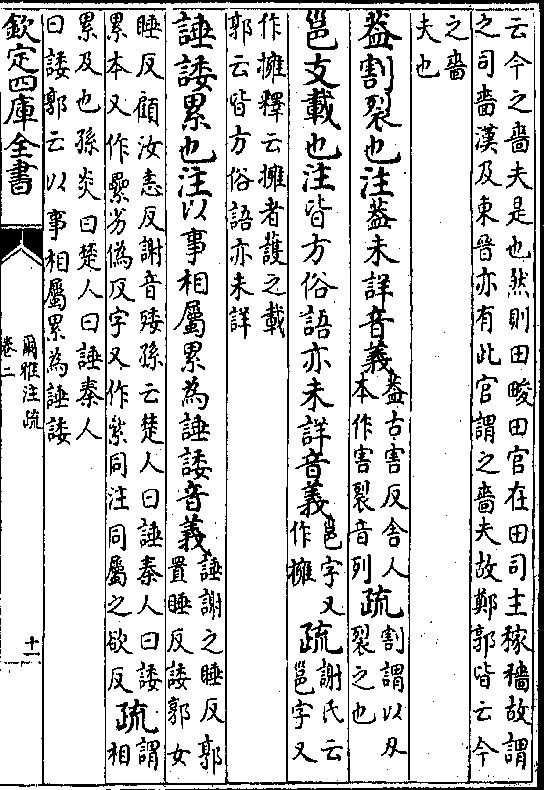 云今之嗇夫是也然則田畯田官在田司主稼穡故謂
之司嗇漢及東晉亦有此官謂之嗇夫故鄭郭皆云今
之嗇
夫也
葢割裂也注葢未詳音義葢古害反舍人本作害裂音列疏割謂以刀裂之也
邕支載也注皆方俗語亦未詳音義邕字又作擁疏謝氏云邕字又
作擁釋云擁者護之載
郭云皆方俗語亦未詳
諈諉累也注以事相屬累為諈諉音義諈謝之睡反郭置睡反諉郭女
睡反顧汝恚反謝音矮孫云楚人曰諈秦人曰諉
累本又作纍劣偽反字又作絫同注同屬之欲反疏謂相
累及也孫炎曰楚人曰諈秦人
曰諉郭云以事相屬累為諈諉
欽定四庫全書
爾雅注疏
卷二
十一